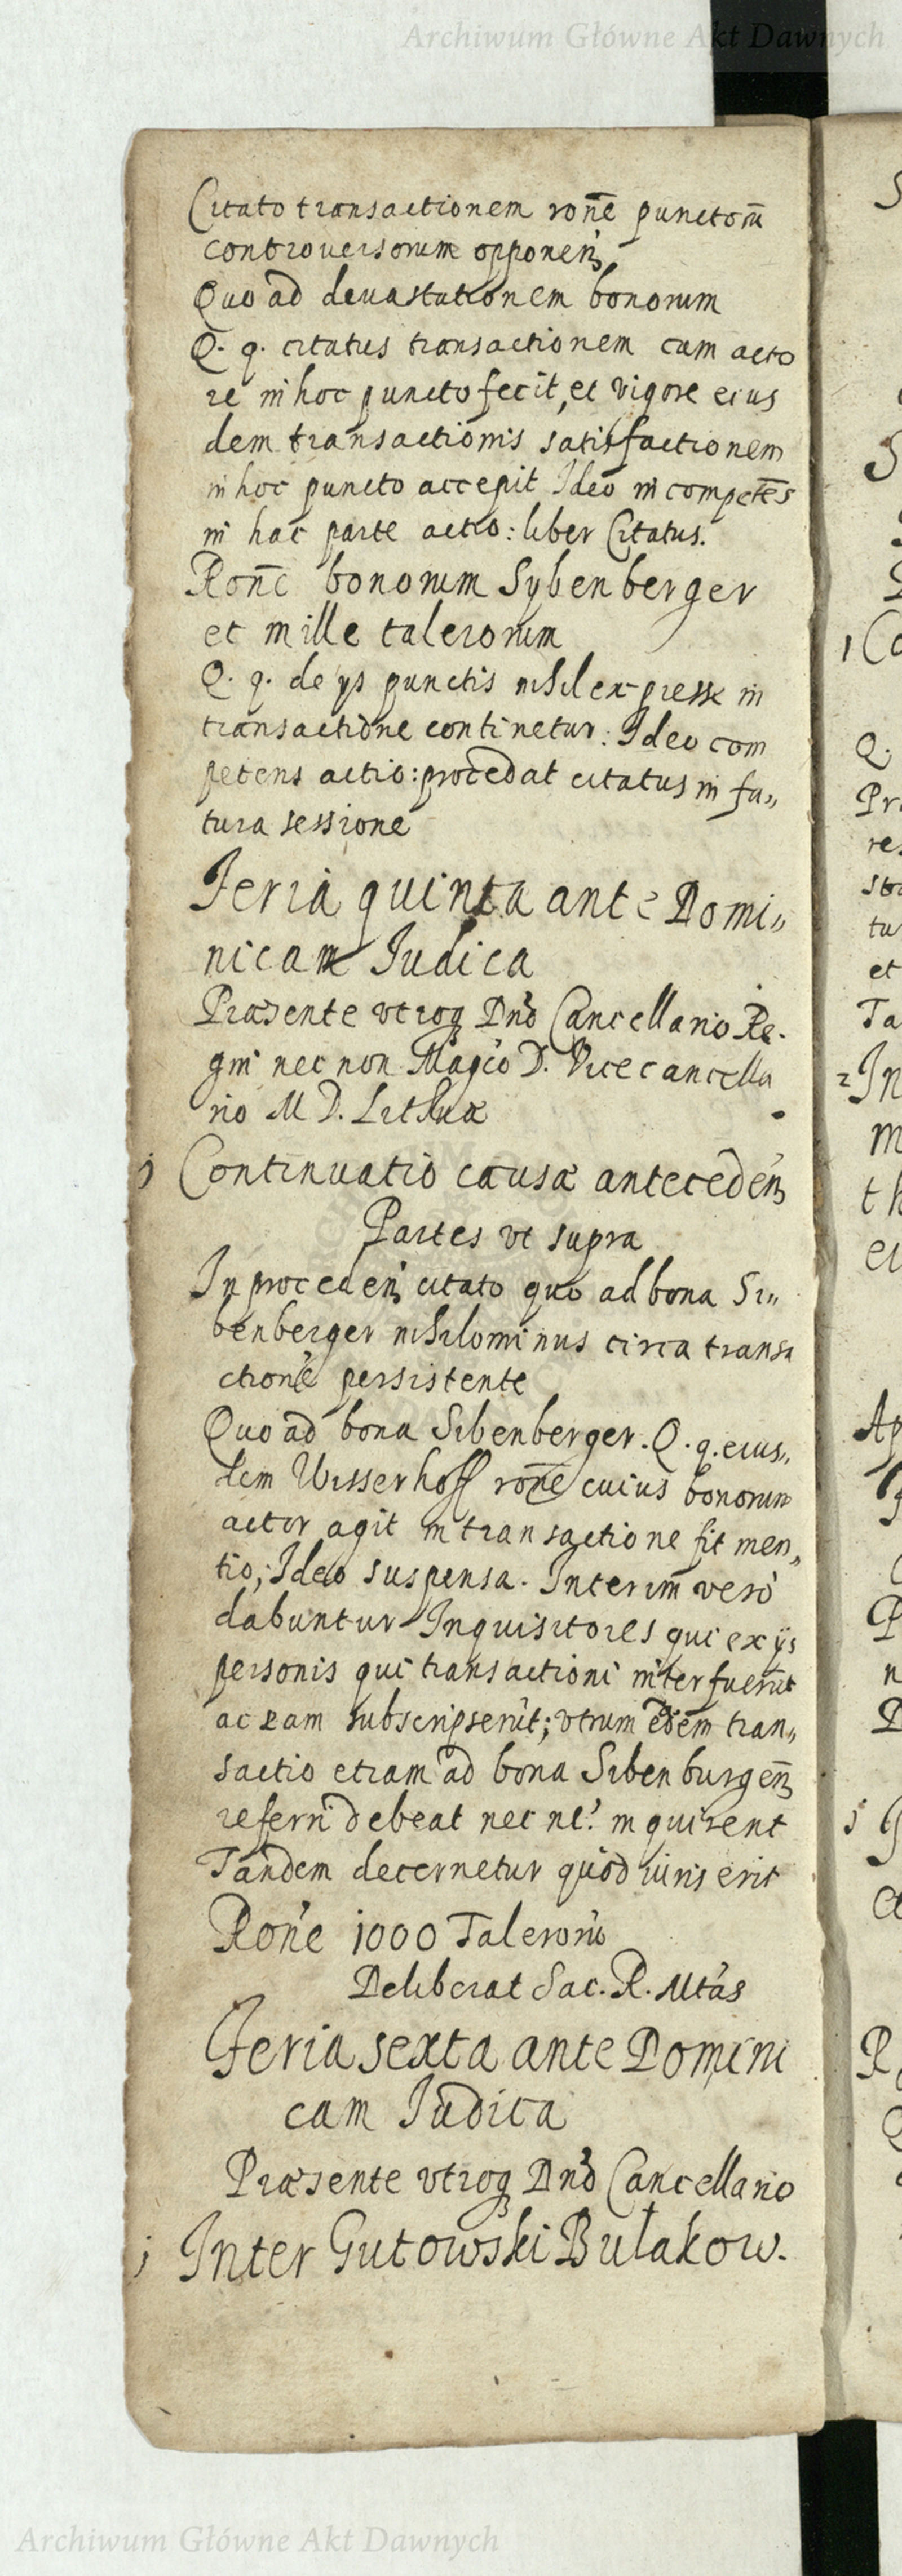 Archiwum Główne Akt Dawnych
Citato transactionem rone punctorū
controuersorum opponen
Quo ad deuastationem bonorum
Q. q. citatus transactionem cum acto
re in hoc puncto fecit, et vigore eius
dem transactionis satisfactionem
in hoc puncto accepit Ideo incompetēs
in hac parte actio: liber Citatus.
Rone bonorum Sybenberger
et mille talerorum
Q. q. de ijs punctis nihil expresse in
transactione continetur: Ideo com
petens actio: procedat citatus in fu„
tura sessione
Feria quinta ante Domi„
nicam Iudica
Præsente vtroq Dnō Cancellario Re.
gni nec non Magco D. Vicecancella
rio M D. Lithuæ
j Continuatio causæ anteceden
Partes vt supra
In proceden citato quo ad bona Si„
benberger nihilominus circa transa
ctionē persistente
Quo ad bona Sibenberger. Q. q. eius„
dem Wisserhoff rone cuius bonorum
actor agit in transactione fit men„
tio, Ideo suspensa. Interim vero
dabuntur Inquisitores qui ex ijs
personis qui transactioni interfuerūt
ac eam subscripserūt; vtrum eadem tran„
sactio etiam ad bona Sibenburgen
referri debeat nec ne? inquirent
Tandem decernetur quod iuris erit
Rone 1000 Talerorū
Deliberat Sac. R. Mtas
Feria sexta ante Domini
cam Iudica
Præsente vtroq Dnō Cancellario
j Inter Gutowski Bułakow.
Archiwum Główne Akt Dawnych